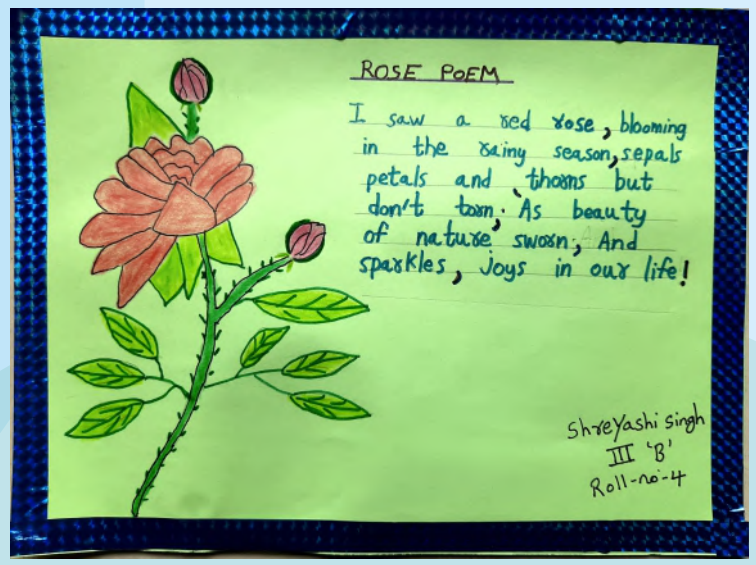 ROSE POEM
I saw a red rose, blooming
in the rainy season, sepals
petals and, thorns but
don't torn; As beauty
of nature sworn; And
sparkles, joys in our life!
Shreyashi Singh
III 'B'
Roll-no-4